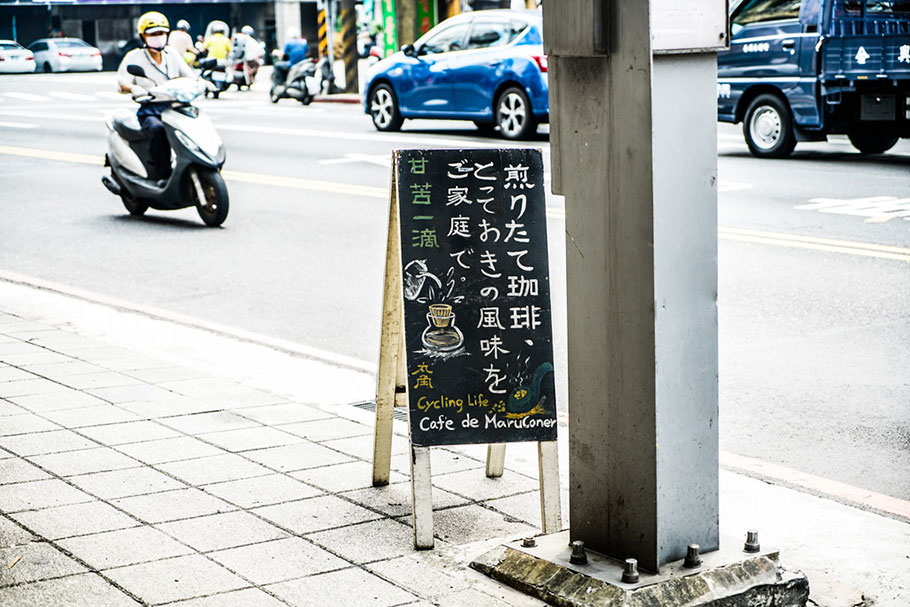 煎りたて珈琲、
とっておきの風味を
ご家庭で。
甘苦一滴
丸角
Cycling Life
Cafe de MaruConer